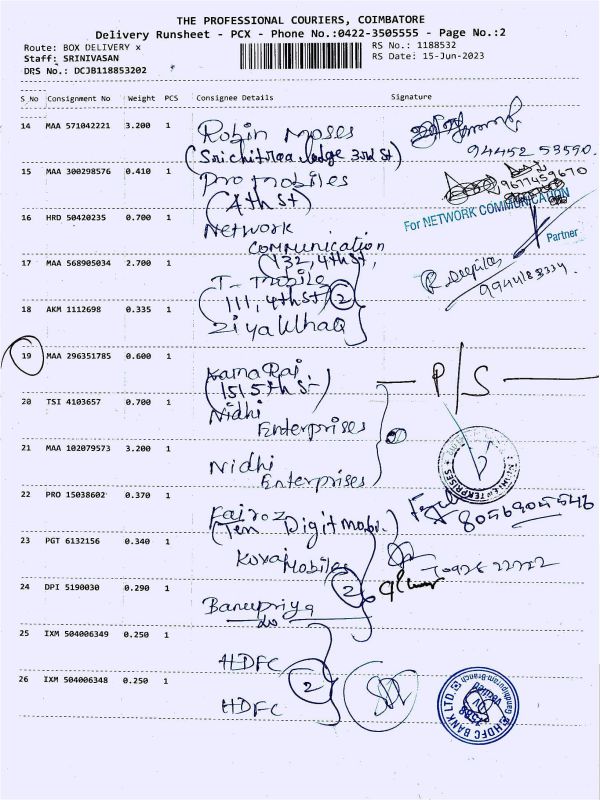 THE PROFESSIONAL COURIERS, COIMBATORE
Delivery Runsheet - PCX - Phone No.:0422-3505555 - Page No.:2
Route: BOX DELIVERY x
RS No.: 1188532
Staff: SRINIVASAN
RS Date: 15-Jun-2023
DRS No.: DCJB118853202
S_No Consignment No Weight PCS Consignee Details Signature
14 MAA 571042221 3.200 1 Robin Moses
(Srichitraa lodge 3rd St)
94452 53590
15 MAA 300298576 0.410 1 Pro mobiles
(4th St)
9677459670
16 HRD 50420235 0.700 1 Network
Communication
For NETWORK COMMUNICATION
Partner
(132, 4th St,
17 MAA 568905034 2.700 1 T- mobile
(111, 4th St) 2
R. Deepika
18 AKM 1112698 0.335 1 Ziyaulhaq
19 MAA 296351785 0.600 1 Kamaraj
(151 5th St)
P/S
20 TSI 4103657 0.700 1 Nidhi
Enterprises
21 MAA 102079573 3.200 1 Nidhi
Enterprises
22 PRO 15038602 0.370 1 Fairoz
(Ten Digit mobi.)
8056905546
23 PGT 6132156 0.340 1 Kovai Mobiles
24 DPI 5190030 0.290 1 Banupriya
2
25 IXM 504006349 0.250 1 HDFC
2
26 IXM 504006348 0.250 1 HDFC
HDFC BANK LTD.
Gandhipuram-Branch